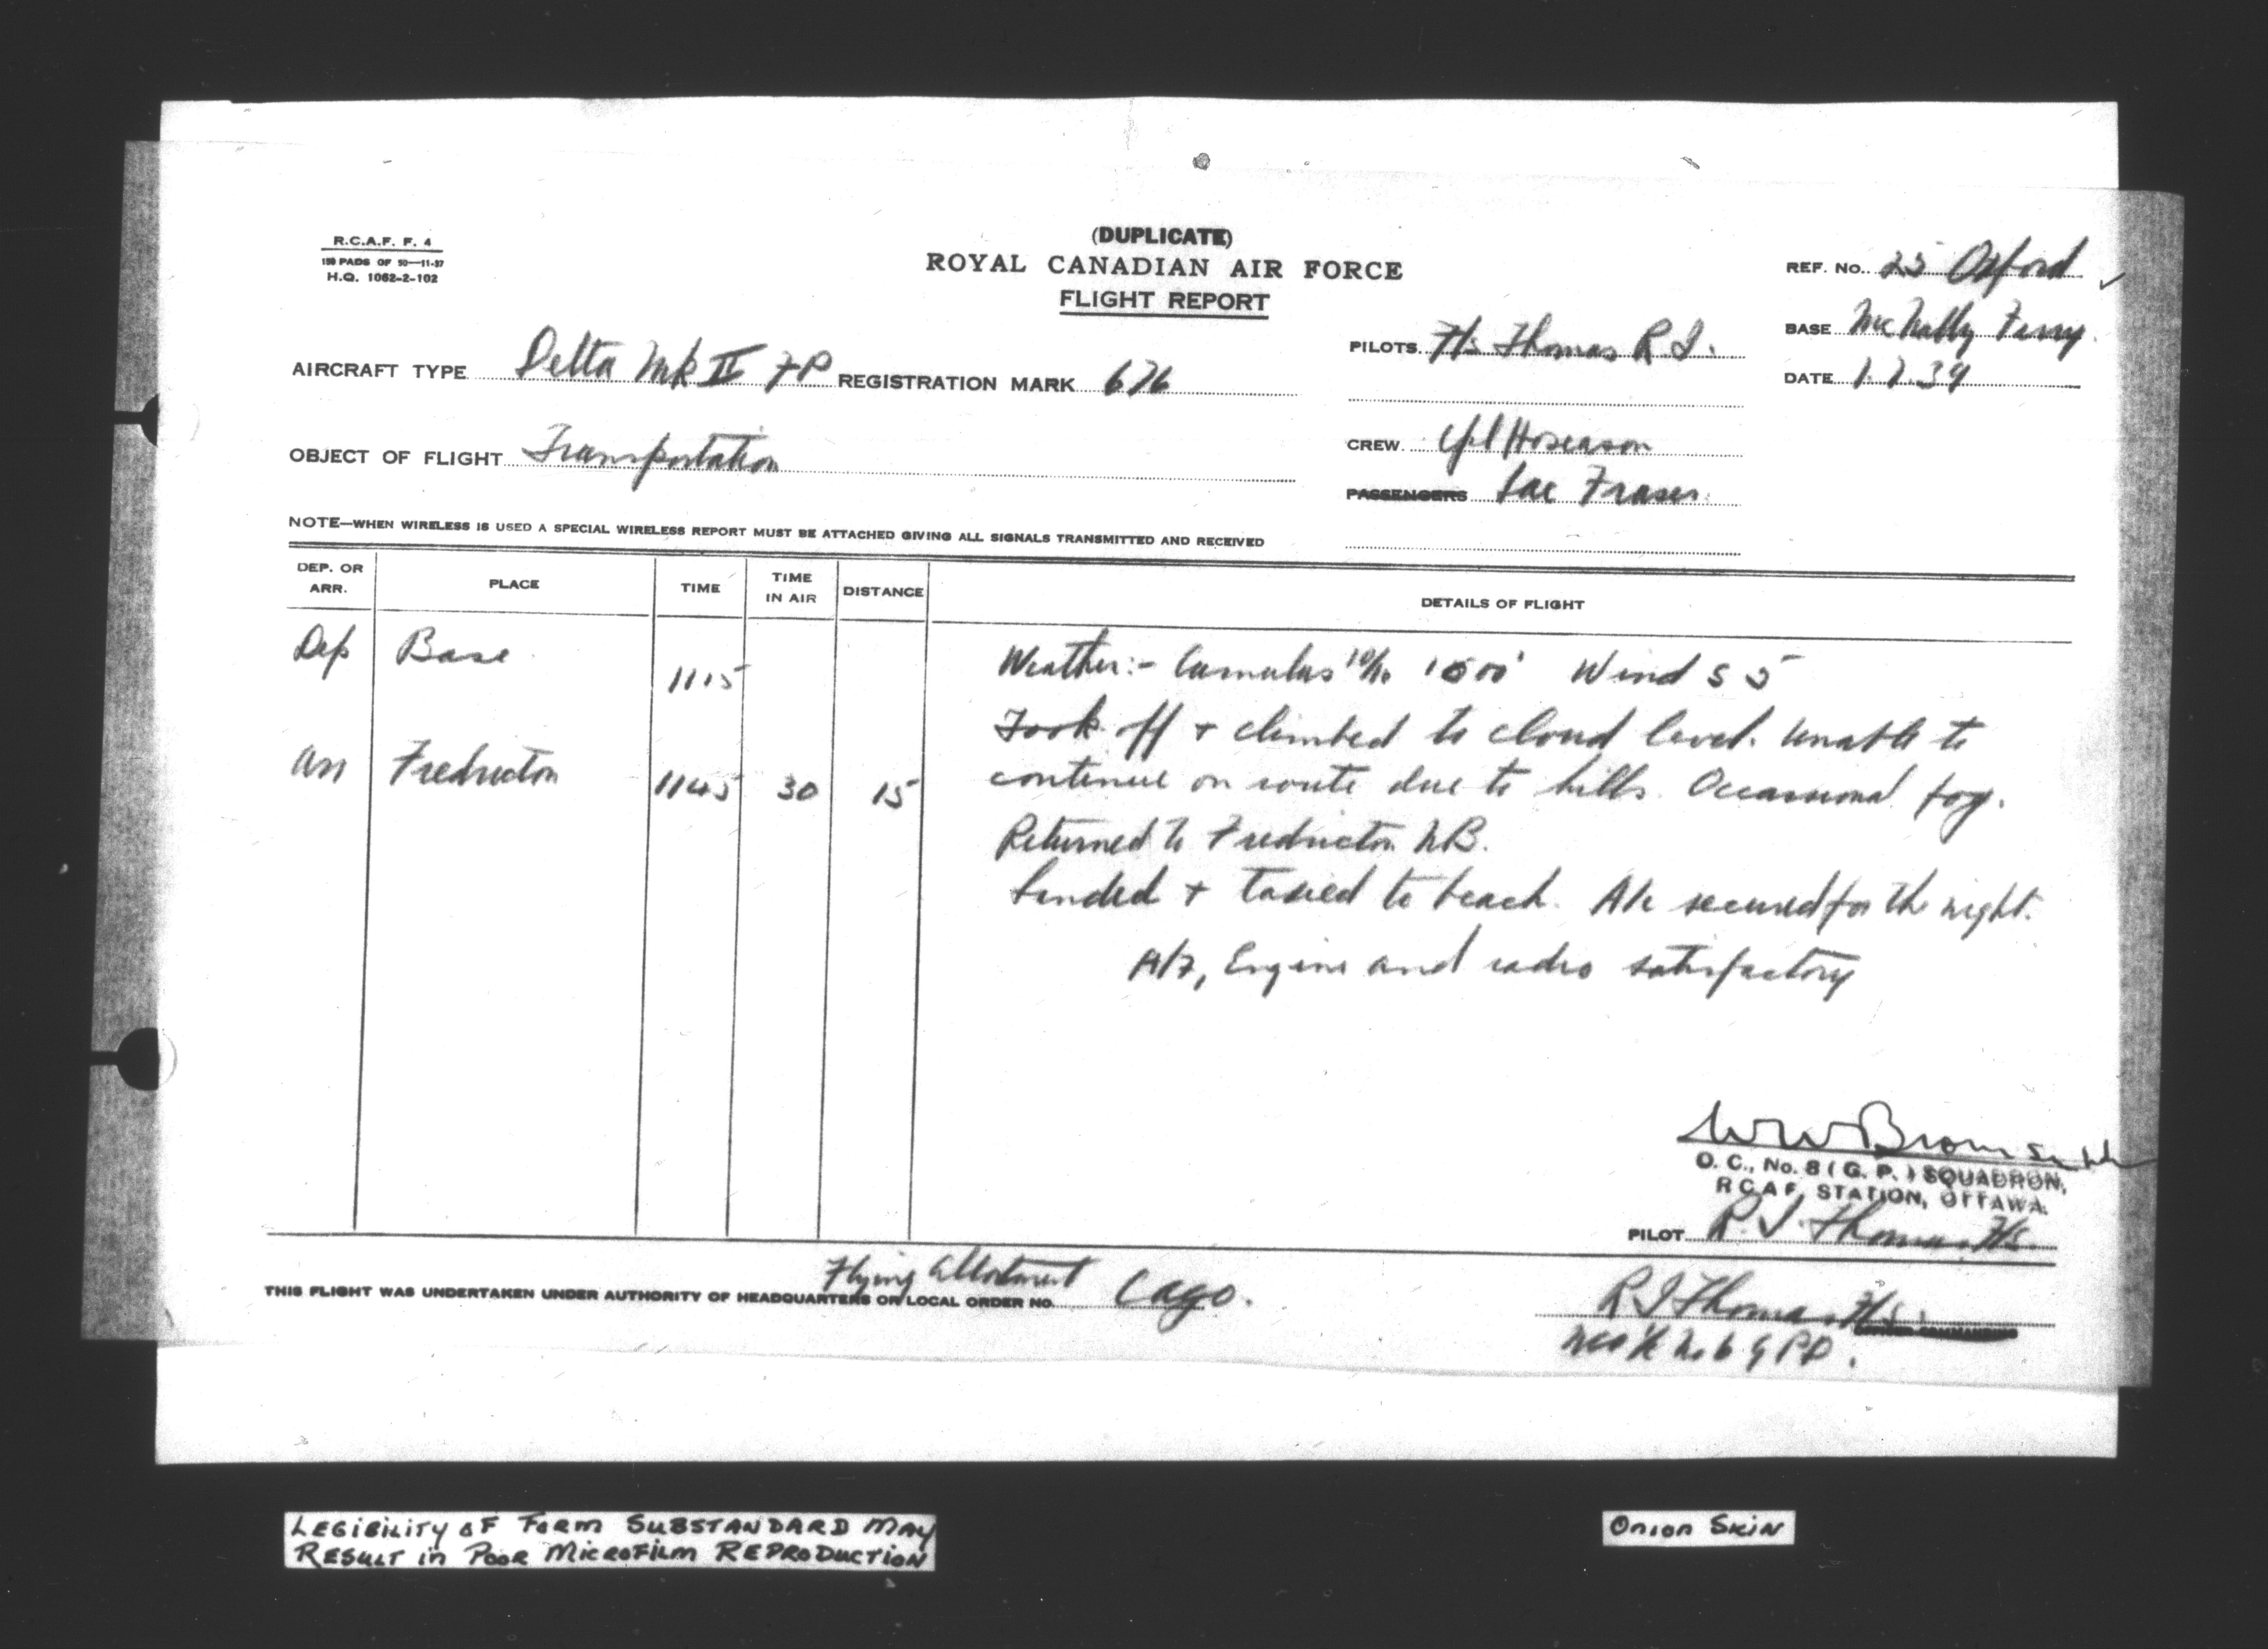 (DUPLICATE)
ROYAL CANADIAN AIR FORCE
FLIGHT REPORT
R.C.A.F. F. 4
150 PADS OF 50—11-37
H.Q. 1062-2-102
REF. No. 25 Oxford
BASE McNally Ferry.
DATE 1.7.39
AIRCRAFT TYPE Delta Mk II FP REGISTRATION MARK 676
PILOTS F/S Thomas R.I.
OBJECT OF FLIGHT Transportation
CREW Cpl Hoseason
PASSENGERS Lac Fraser.
NOTE—WHEN WIRELESS IS USED A SPECIAL WIRELESS REPORT MUST BE ATTACHED GIVING ALL SIGNALS TRANSMITTED AND RECEIVED
DEP. OR ARR. PLACE TIME TIME IN AIR DISTANCE DETAILS OF FLIGHT
Dep Base 1115
Arr Fredricton 1145 30 15
Weather:- Cumulus 10/10 1000' Wind S 5
Took off + climbed to cloud level. Unable to
continue on route due to hills. Occassional fog.
Returned to Fredricton N.B.
Landed + taxied to beach. A/c secured for the night.
A/F, Engine and radio satisfactory
O. C., No. 8 (G. P.) SQUADRON,
R C A F, STATION, OTTAWA.
PILOT R. I. Thomas F/S
Flying Allotment
THIS FLIGHT WAS UNDERTAKEN UNDER AUTHORITY OF HEADQUARTERS OR LOCAL ORDER NO. Cago.
R I Thomas F/S
LEGIBILITY OF FORM SUBSTANDARD MAY
RESULT in POOR MICROFILM REPRODUCTION
ONION SKIN